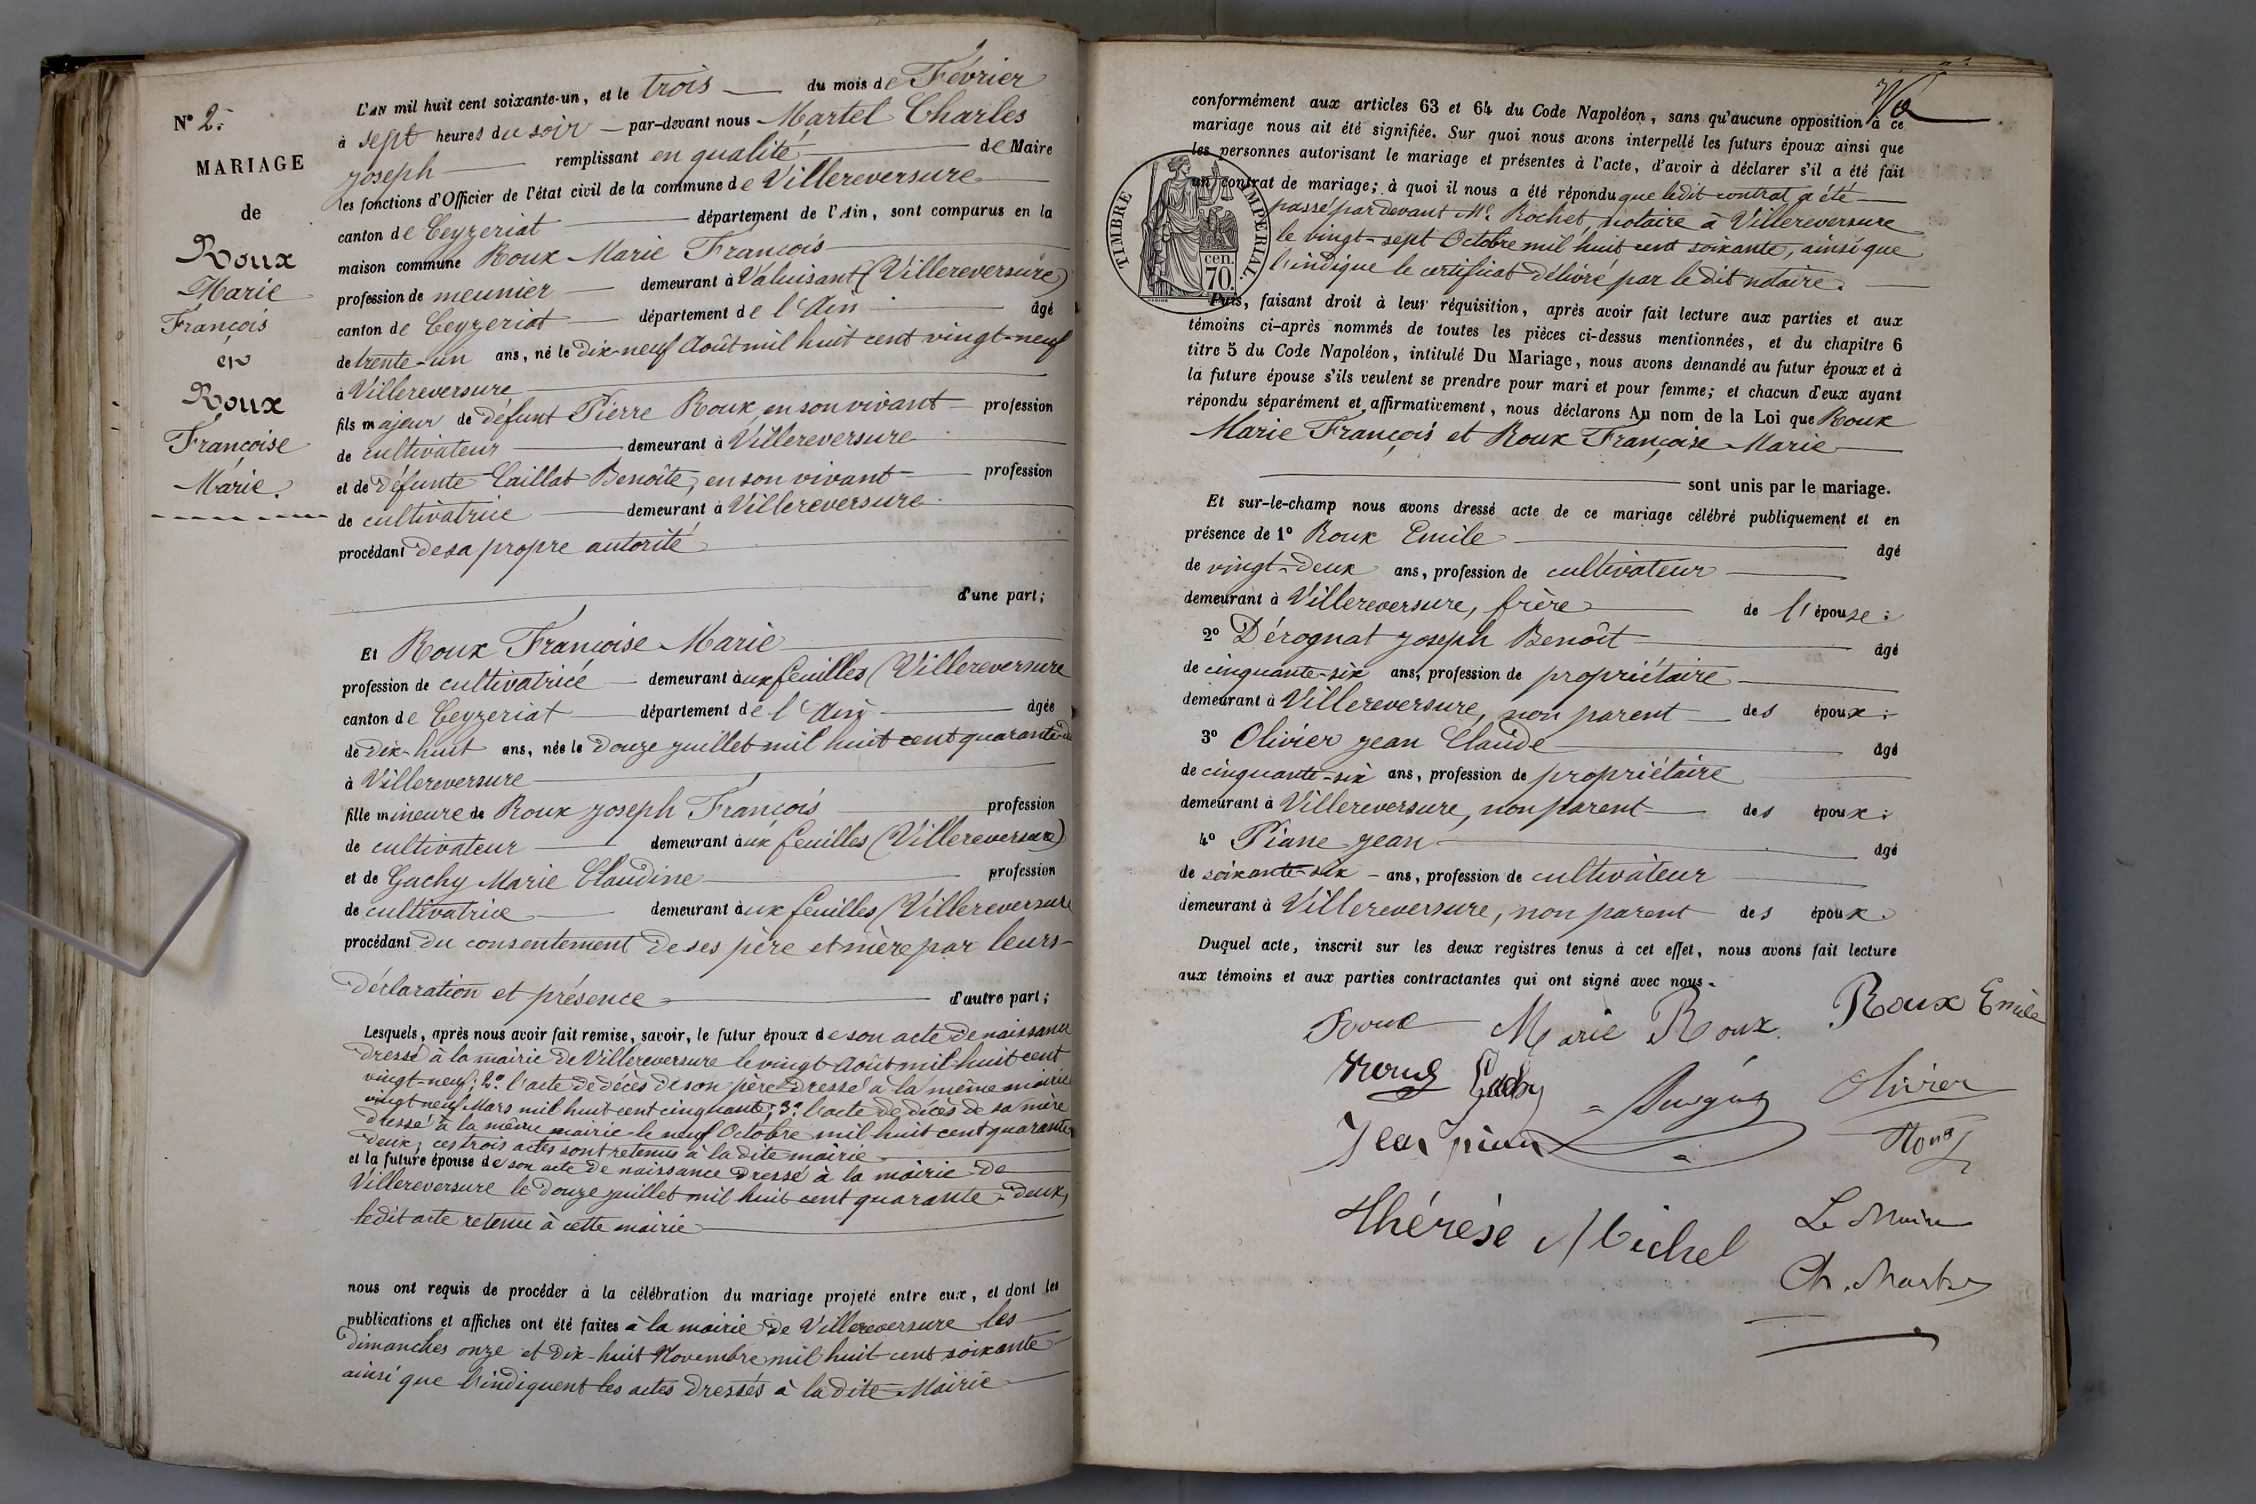 N° 2.
MARIAGE
de
Roux
Marie
François
et
Roux
Françoise
Marie.
L'AN mil huit cent soixante-un, et le trois du mois de Février
à sept heures du soir par-devant nous Martel Charles
Joseph remplissant en qualité de Maire
les fonctions d'Officier de l'état civil de la commune de Villereversure
canton de Ceyzeriat département de l'Ain, sont comparus en la
maison commune Roux Marie François
profession de meunier demeurant à Valuisant (Villereversure)
canton de Ceyzeriat département de l'Ain âgé
de trente-un ans, né le dix-neuf Août mil huit cent vingt-neuf
à Villereversure
fils majeur de défunt Pierre Roux, en son vivant profession
de cultivateur demeurant à Villereversure
et de défunte Caillat Benoîte, en son vivant profession
de cultivatrice demeurant à Villereversure
procédant de sa propre autorité
d'une part;
Et Roux Françoise Marie
profession de cultivatrice demeurant aux feuilles (Villereversure
canton de Ceyzeriat département de l'Ain âgée
de dix-huit ans, née le douze juillet mil huit cent quarante-
à Villereversure
fille mineure de Roux Joseph François profession
de cultivateur demeurant aux feuilles (Villereversure)
et de Gachy Marie Claudine profession
de cultivatrice demeurant aux feuilles (Villereversure
procédant du consentement de ses père et mère par leurs
déclaration et présence d'autre part;
Lesquels, après nous avoir fait remise, savoir, le futur époux de son acte de naissance
dressé à la mairie de Villereversure le vingt Août mil huit cent
vingt-neuf; 2.° l'acte de décès de son père dressé à la même mairie
vingt neuf Mars mil huit cent cinquante; 3.° l'acte de décès de sa mère
dressé à la même mairie le neuf Octobre mil huit cent quarante
deux; ces trois actes sont retenus à la dite mairie
et la future épouse de son acte de naissance dressé à la mairie de
Villereversure le douze juillet mil huit cent quarante-deux,
ledit acte retenu à cette mairie
nous ont requis de procéder à la célébration du mariage projeté entre eux, et dont les
publications et affiches ont été faites à la mairie de Villereversure les
dimanches onze et dix-huit Novembre mil huit cent soixante
ainsi que l'indiquent les actes dressés à la dite Mairie
conformément aux articles 63 et 64 du Code Napoléon, sans qu'aucune opposition à ce
mariage nous ait été signifiée. Sur quoi nous avons interpellé les futurs époux ainsi que
les personnes autorisant le mariage et présentes à l'acte, d'avoir à déclarer s'il a été fait
un contrat de mariage; à quoi il nous a été répondu que ledit contrat a été
passé par devant M.e Rochet, notaire à Villereversure
le vingt-sept Octobre mil huit cent soixante, ainsi que
l'indique le certificat délivré par le dit notaire.
TIMBRE IMPÉRIAL.
70 cen.
Puis, faisant droit à leur réquisition, après avoir fait lecture aux parties et aux
témoins ci-après nommés de toutes les pièces ci-dessus mentionnées, et du chapitre 6
titre 5 du Code Napoléon, intitulé Du Mariage, nous avons demandé au futur époux et à
la future épouse s'ils veulent se prendre pour mari et pour femme; et chacun d'eux ayant
répondu séparément et affirmativement, nous déclarons Au nom de la Loi que Roux
Marie François et Roux Françoise Marie
sont unis par le mariage.
Et sur-le-champ nous avons dressé acte de ce mariage célébré publiquement et en
présence de 1° Roux Emile âgé
de vingt-deux ans, profession de cultivateur
demeurant à Villereversure, frère de l'épouse;
2° Dérognat Joseph Benoît âgé
de cinquante-six ans, profession de propriétaire
demeurant à Villereversure, non parent des époux;
3° Olivier Jean Claude âgé
de cinquante-six ans, profession de propriétaire
demeurant à Villereversure, non parent des époux;
4° Piane Jean âgé
de soixante-six ans, profession de cultivateur
demeurant à Villereversure, non parent des époux.
Duquel acte, inscrit sur les deux registres tenus à cet effet, nous avons fait lecture
aux témoins et aux parties contractantes qui ont signé avec nous.
Roux Marie Roux Roux Emile
Roux Gachy Olivier
Jean piane
Thérèse Michel Le Maire
Ch. Martel